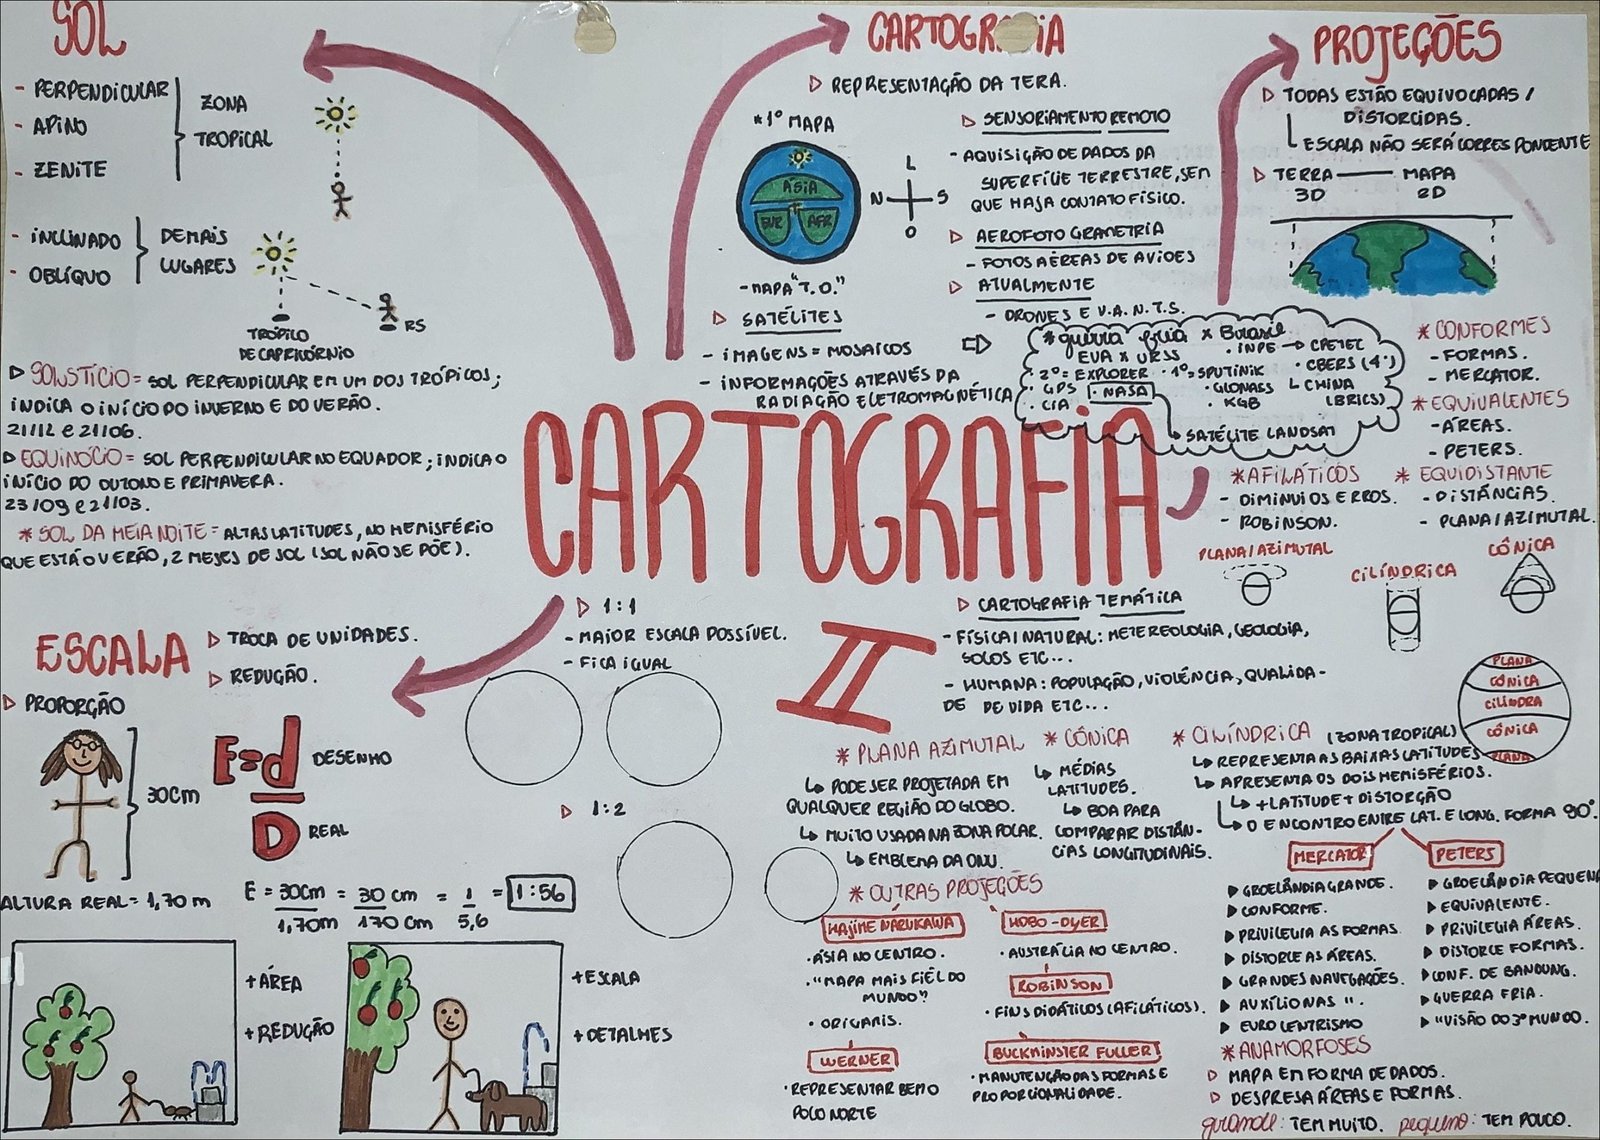 SOL
- PERPENDICULAR
- APINO
- ZENITE
ZONA
TROPICAL
- INCLINADO
- OBLÍQUO
DEMAIS
LUGARES
TRÓPICO
DE CAPRICÓRNIO
RS
▷ SOLSTÍCIO = SOL PERPENDICULAR EM UM DOS TRÓPICOS;
INDICA O INÍCIO DO INVERNO E DO VERÃO.
21/12 e 21/06.
▷ EQUINÓCIO = SOL PERPENDICULAR NO EQUADOR; INDICA O
INÍCIO DO OUTONO E PRIMAVERA.
23/09 e 21/03.
* SOL DA MEIA NOITE = ALTAS LATITUDES, NO HEMISFÉRIO
QUE ESTÁ O VERÃO, 2 MESES DE SOL (SOL NÃO SE PÕE).
CARTOGRAFIA
▷ REPRESENTAÇÃO DA TERA.
* 1º MAPA
ÁSIA
EUR
AFR
L
N
S
O
- MAPA "T.O."
▷ SATÉLITES
- IMAGENS = MOSAICOS
- INFORMAÇÕES ATRAVÉS DA
RADIAÇÃO ELETROMAGNÉTICA
▷ SENSORIAMENTO REMOTO
- AQUISIÇÃO DE DADOS DA
SUPERFÍCIE TERRESTRE, SEM
QUE HAJA CONTATO FÍSICO.
▷ AEROFOTO GRAMETRIA
- FOTOS AÉREAS DE AVIÕES
▷ ATUALMENTE
- DRONES E V.A.N.T.S.
* guerra fria x Brasil
EUA x URSS
· INPE → CPETEC
· 2º = EXPLORER · 1º = SPUTINIK
· CBERS (4º)
· GPS
· NASA
· GLONASS
CHINA
· CIA
· KGB
(BRICS)
SATÉLITE LANDSAT
PROJEÇÕES
▷ TODAS ESTÃO EQUIVOCADAS /
DISTORCIDAS.
ESCALA NÃO SERÁ CORRES PONDENTE
▷ TERRA — MAPA
3D 2D
* CONFORMES
- FORMAS.
- MERCATOR.
* EQUIVALENTES
- ÁREAS.
- PETERS.
* AFILÁTICOS
- DIMINUI OS ERROS.
- ROBINSON.
* EQUIDISTANTE
- DISTÂNCIAS.
- PLANA / AZIMUTAL.
PLANA / AZIMUTAL
CILÍNDRICA
CÔNICA
CARTOGRAFIA
II
ESCALA
▷ TROCA DE UNIDADES.
▷ REDUÇÃO.
▷ PROPORÇÃO
30cm
E = d
D
DESENHO
REAL
ALTURA REAL = 1,70 m
E = 30cm = 30 cm = 1 = 1:56
1,70m 170 cm 5,6
+ ÁREA
+ REDUÇÃO
+ ESCALA
+ DETALHES
▷ 1:1
- MAIOR ESCALA POSSÍVEL.
- FICA IGUAL
▷ 1:2
▷ CARTOGRAFIA TEMÁTICA
- FÍSICA / NATURAL: METEREOLOGIA, GEOLOGIA,
SOLOS ETC...
- HUMANA: POPULAÇÃO, VIOLÊNCIA, QUALIDA-
DE DE VIDA ETC...
PLANA
CÔNICA
CILÍNDRA
CÔNICA
PLANA
* PLANA AZIMUTAL
↳ PODE SER PROJETADA EM
QUALQUER REGIÃO DO GLOBO.
↳ MUITO USADA NA ZONA POLAR.
↳ EMBLEMA DA ONU.
* CÔNICA
↳ MÉDIAS
LATITUDES.
↳ BOA PARA
COMPARAR DISTÂN-
CIAS LONGITUDINAIS.
* CILÍNDRICA (ZONA TROPICAL)
↳ REPRESENTA AS BAIXAS LATITUDES
↳ APRESENTA OS DOIS HEMISFÉRIOS.
↳ + LATITUDE + DISTORÇÃO
↳ O ENCONTRO ENTRE LAT. E LONG. FORMA 90º.
MERCATOR
▶ GROELÂNDIA GRANDE.
▶ CONFORME.
▶ PRIVILEGIA AS FORMAS.
▶ DISTORCE AS ÁREAS.
▶ GRANDES NAVEGAÇÕES.
▶ AUXÍLIO NAS ".
▶ EURO CENTRISMO
PETERS
▶ GROELÂNDIA PEQUENA
▶ EQUIVALENTE.
▶ PRIVILEGIA ÁREAS.
▶ DISTORCE FORMAS.
▶ CONF. DE BANDUNG.
▶ GUERRA FRIA.
▶ "VISÃO DO 3º MUNDO.
* OUTRAS PROJEÇÕES
HAJIME NARUKAWA
· ÁSIA NO CENTRO.
· "MAPA MAIS FIÉL DO
MUNDO"?
· ORIGAMIS.
WERNER
· REPRESENTAR BEM O
POLO NORTE
HOBO-DYER
· AUSTRÁLIA NO CENTRO.
ROBINSON
· FINS DIDÁTICOS (AFILÁTICOS).
BUCKMINSTER FULLER
· MANUTENÇÃO DAS FORMAS E
PROPORCIONALIDADE.
* ANAMORFOSES
▷ MAPA EM FORMA DE DADOS.
▷ DESPRESA ÁREAS E FORMAS.
grande: TEM MUITO. pequeno: TEM POUCO.